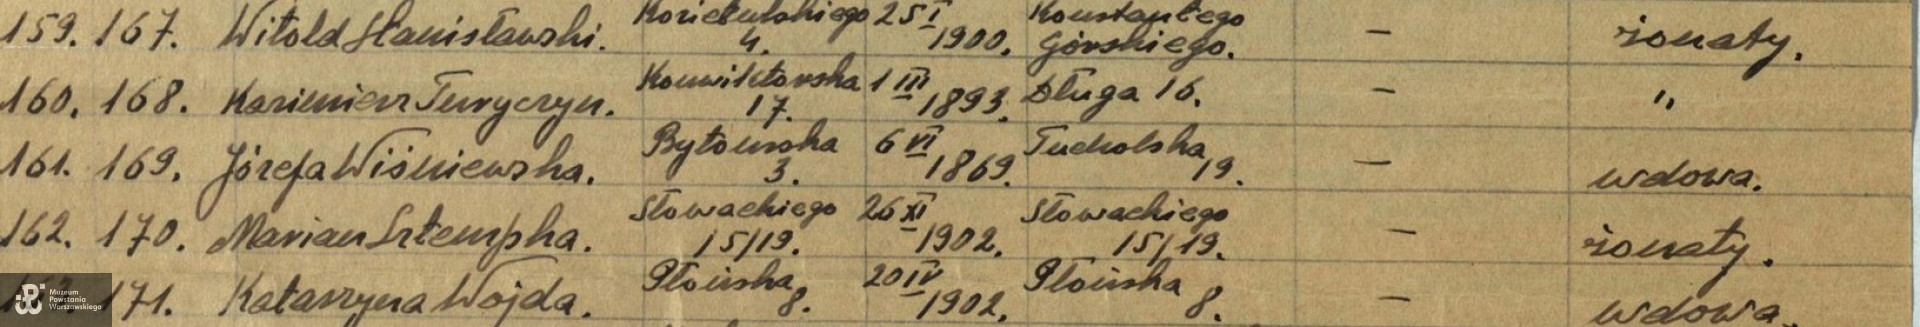 159. 167. Witold Stanisławski. Kozietulskiego 4. 25 I 1900. Konstantego Górskiego. — żonaty.
160. 168. Kazimierz Turyczyn. Konwiktorska 17. 1 III 1893. Długa 16. — "
161. 169. Józefa Wiśniewska. Bytowska 3. 6 VI 1869. Tucholska 19. — wdowa.
162. 170. Marian Sztempka. Słowackiego 15/19. 26 XI 1902. Słowackiego 15/19. — żonaty.
171. Katarzyna Wojda. Płońska 8. 20 IV 1902. Płońska 8. — wdowa.
Muzeum
Powstania
Warszawskiego